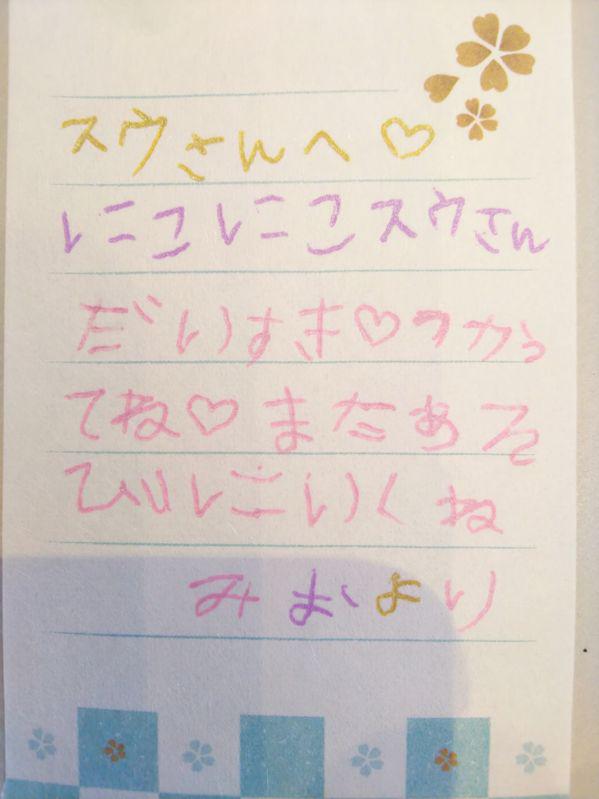 スウさんへ♡
にこにこスウさん
だいすき♡つかっ
てね♡またあそ
びにいくね
みおより